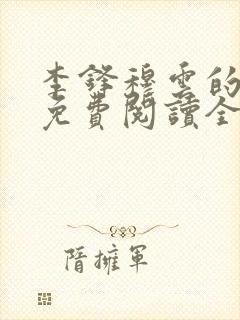 李鋒穆雲的
免費閱讀全
隋擁軍